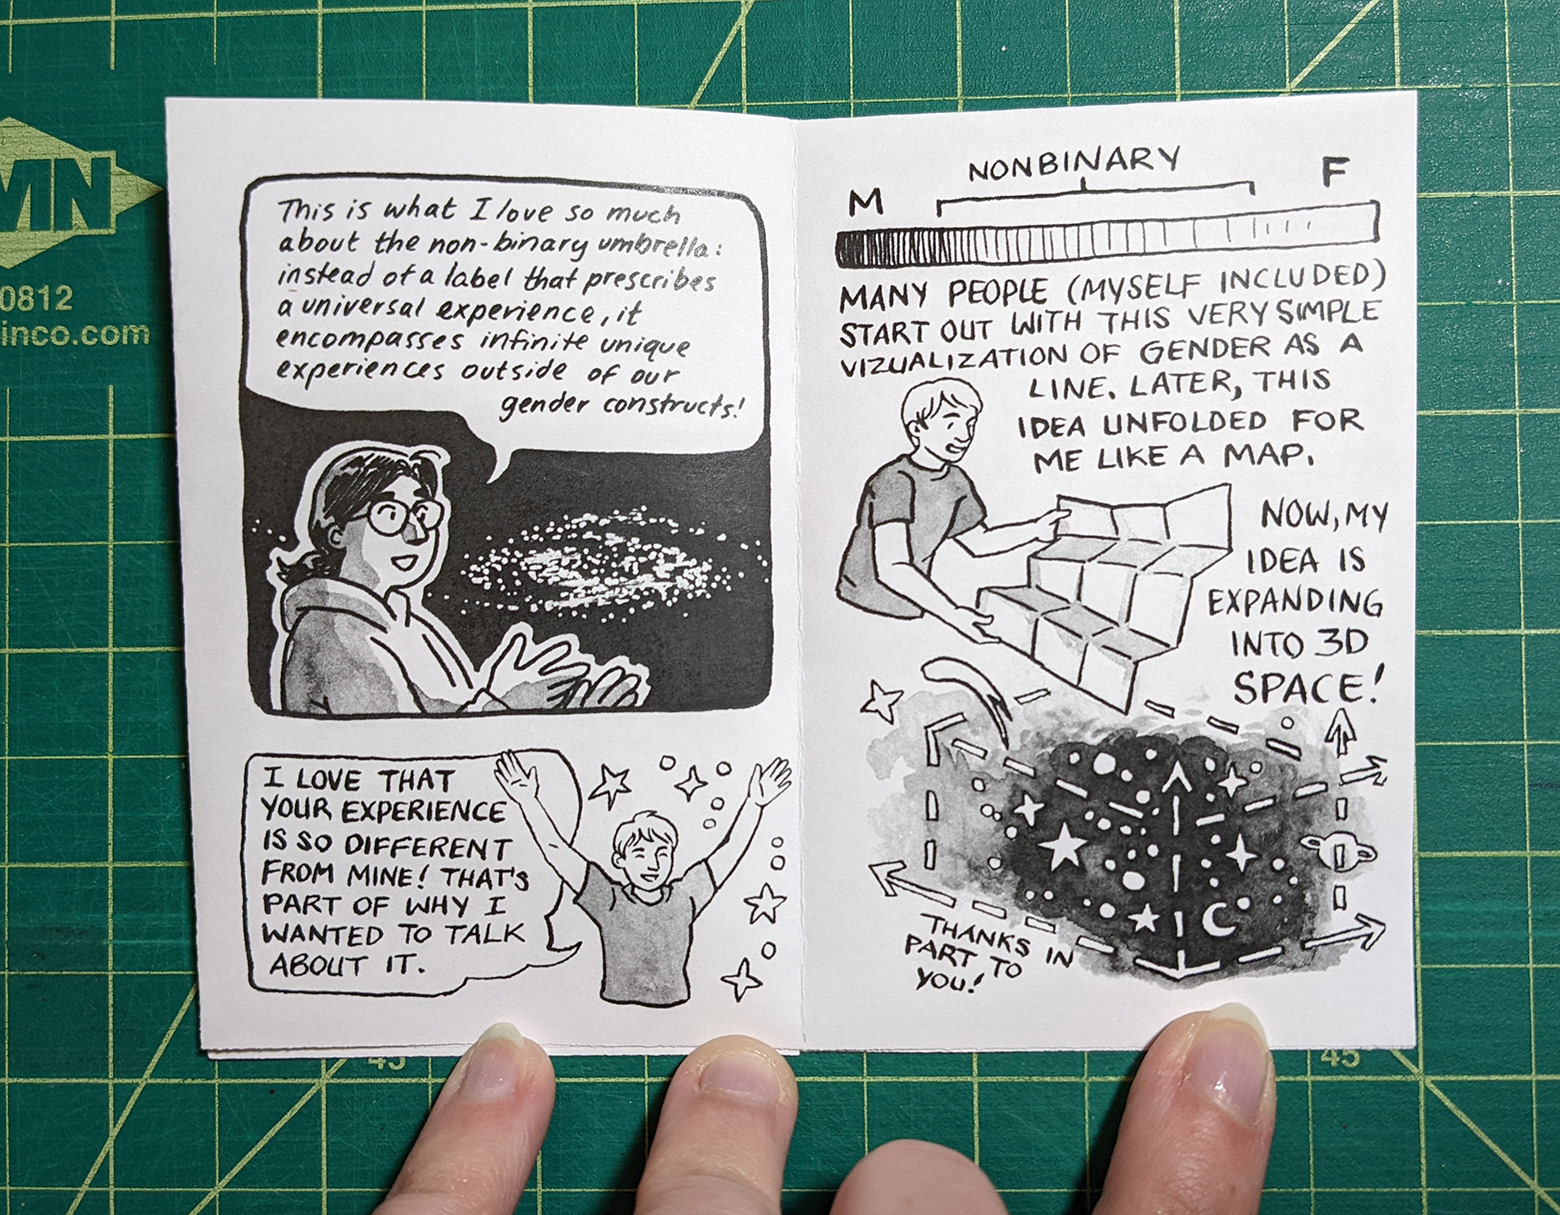 MN
0812
inco.com
This is what I love so much
about the non-binary umbrella:
instead of a label that prescribes
a universal experience, it
encompasses infinite unique
experiences outside of our
gender constructs!
I LOVE THAT
YOUR EXPERIENCE
IS SO DIFFERENT
FROM MINE! THAT'S
PART OF WHY I
WANTED TO TALK
ABOUT IT.
NONBINARY
M
F
MANY PEOPLE (MYSELF INCLUDED)
START OUT WITH THIS VERY SIMPLE
VIZUALIZATION OF GENDER AS A
LINE. LATER, THIS
IDEA UNFOLDED FOR
ME LIKE A MAP.
NOW, MY
IDEA IS
EXPANDING
INTO 3D
SPACE!
THANKS IN
PART TO
YOU!
45
45